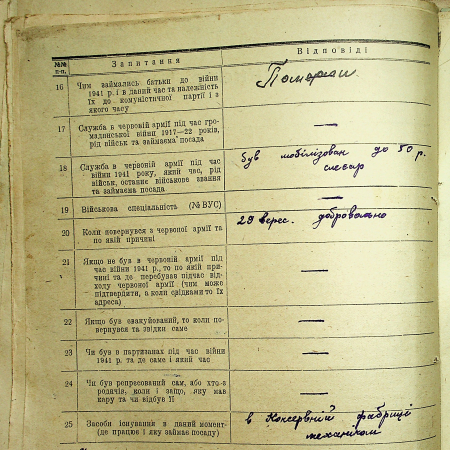 №№ п-п.
Запитання
Відповіді
16
Чим займались батьки до війни
1941 р. і в даний час та належність
їх до комуністичної партії і з
якого часу
Померли.
17
Служба в червоній армії під час гро-
мадянської війни 1917—22 років,
рід військ та займаєма посада
—
18
Служба в червоній армії під час
війни 1941 року, який час, рід
військ, останнє військове звання
та займаєма посада
був мобілізован до 50 р.
слесар
19
Військова спеціальність (№ ВУС)
—
20
Коли повернувся з червоної армії та
по якій причині
29 верес. добровально
21
Якщо не був в червоній армії під
час війни 1941 р., то по якій при-
чині та де перебував підчас від-
ходу червоної армії (чим може
підтвердити, а коли свідками то їх
адреса)
—
22
Якщо був евакуйований, то коли по-
вернувся та звідки саме
—
23
Чи був в партизанах під час війни
1941 р. та де саме і який час
—
24
Чи був репресований сам, або хто-з
родичів, коли і защо, яку мав
кару та чи відбув її
—
25
Засоби існування в даний момент-
(де працює і яку займає посаду)
в Консервній фабриці
механіком